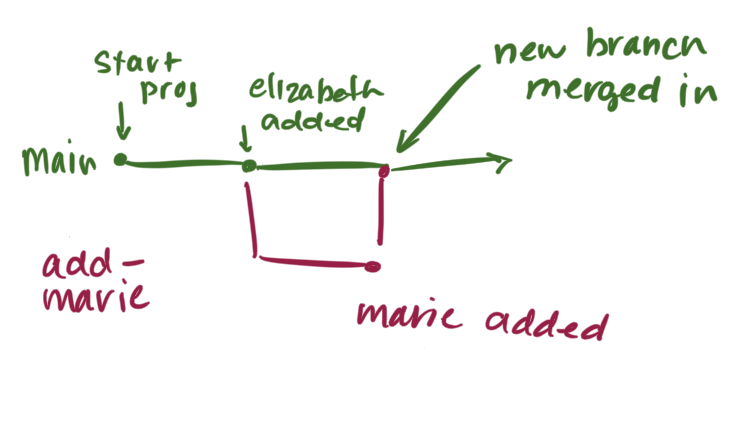 start
proj
elizabeth
added
new branch
merged in
Main
add-
marie
marie added